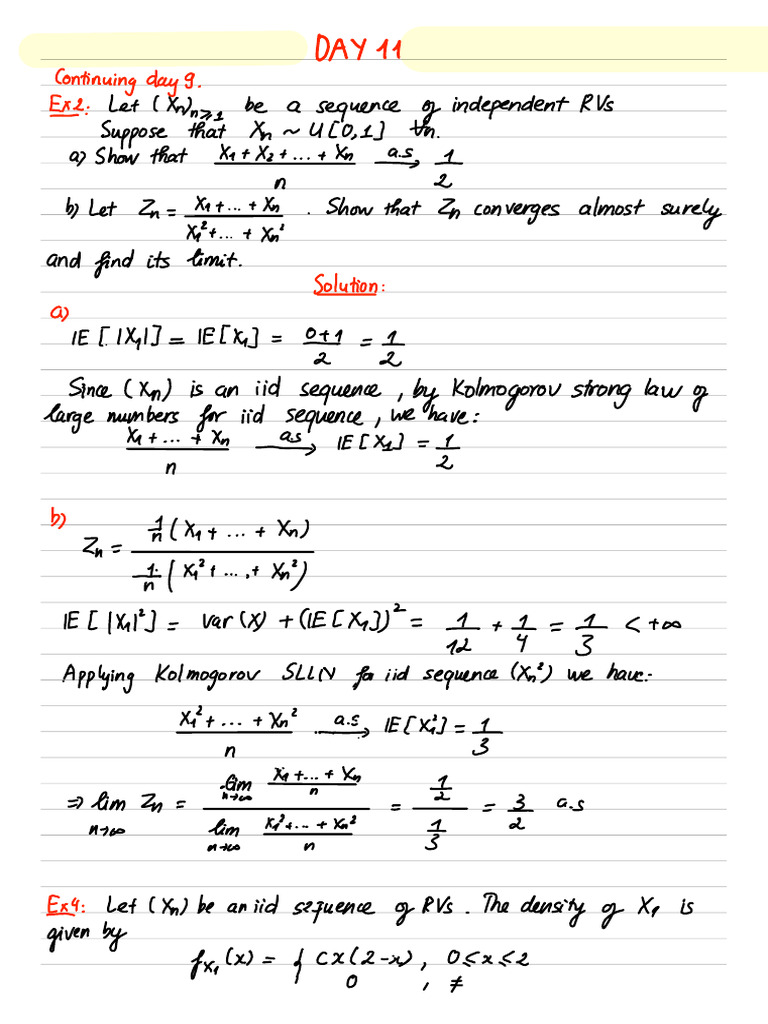 DAY 11
Continuing day 9.
Ex2: Let (Xn)n⩾1 be a sequence of independent RVs
Suppose that Xn ~ U[0,1] ∀n.
a) Show that (X1 + X2 + ... + Xn)/n —a.s→ 1/2
b) Let Zn = (X1 + ... + Xn)/(X1² + ... + Xn²) . Show that Zn converges almost surely
and find its limit.
Solution:
a)
IE[|X1|] = IE[X1] = (0+1)/2 = 1/2
Since (Xn) is an iid sequence, by Kolmogorov strong law of
large numbers for iid sequence, we have:
(X1 + ... + Xn)/n —a.s→ IE[X1] = 1/2
b)
Zn = (1/n (X1 + ... + Xn))/(1/n (X1² + ... + Xn²))
IE[|X1|²] = var(X) + (IE[X1])² = 1/12 + 1/4 = 1/3 < +∞
Applying Kolmogorov SLLN for iid sequence (Xn²) we have:
(X1² + ... + Xn²)/n —a.s→ IE[X1²] = 1/3
⇒ lim n→∞ Zn = (lim n→∞ (X1 + ... + Xn)/n)/(lim n→∞ (X1² + ... + Xn²)/n) = (1/2)/(1/3) = 3/2 a.s
Ex4: Let (Xn) be an iid sequence of RVs. The density of X1 is
given by
fX1(x) = { Cx(2-x), 0 ⩽ x ⩽ 2
0 , ≠